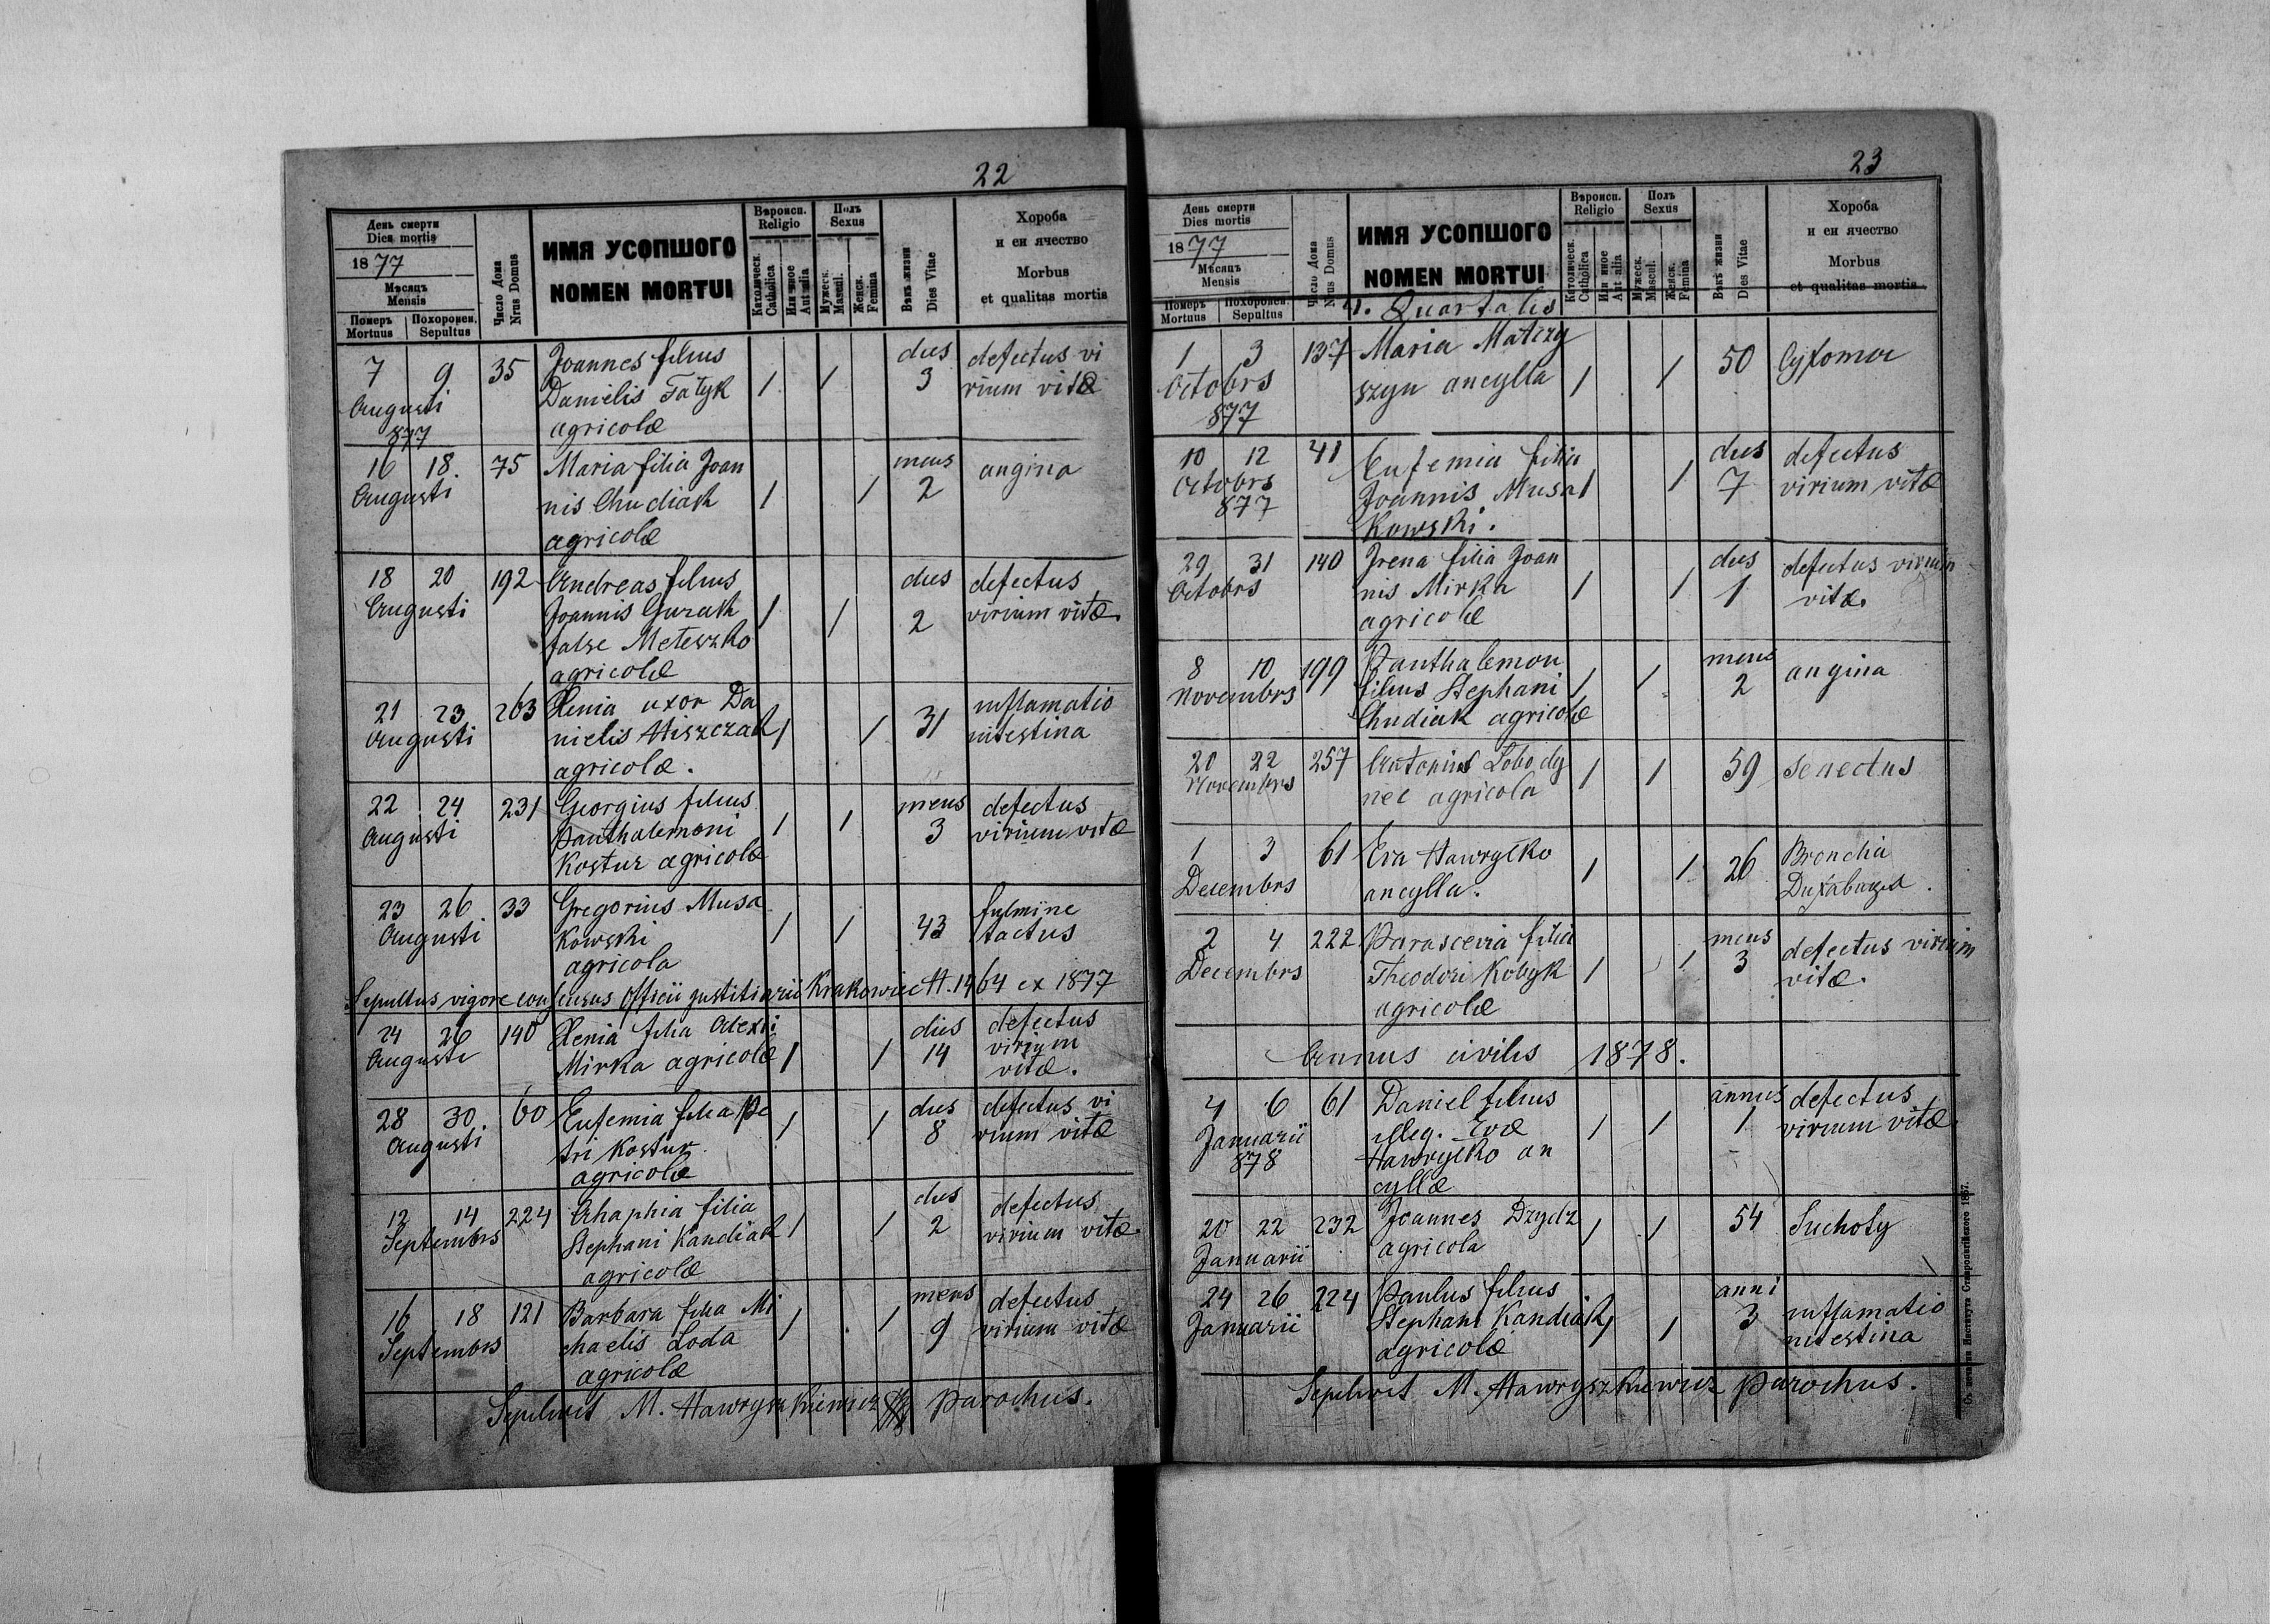 22
День смерти
Dies mortis
1877
Мѣсяцъ
Mensis
Померъ Mortuus
Похоронен. Sepultus
Число Дома
Nrus Domus
ИМЯ УСОПШОГО
NOMEN MORTUI
Вѣроисп.
Religio
Католическ. Catholica
Или иное Aut alia
Полъ
Sexus
Мужеск. Mascul.
Женск. Femina
Вѣкъ жизни
Dies Vitae
Хороба
и еи ячество
Morbus
et qualitas mortis
7 9 35 Joannes filius dies defectus vi
Augusti Danielis Fatyk / / 3 rium vitæ
877 agricolæ
16 18. 75 Maria filia Joan mens angina
Augusti nis Chudiak / / 2
agricolæ
18 20 192 Andreas filius dies defectus
Augusti Joannis Gurak / / 2 virium vitæ.
false Meteszko
agricolæ
21 23 263 Xenia uxor Da inflamatio
Augusti nielis Hiszczak / / 31 intestina
agricolæ.
22 24 231 Georgius filius mens defectus
Augusti Panthalemoni / / 3 virium vitæ
Kostur agricolæ
23 26 33 Gregorius Musa fulmine
Augusti kowski / / 43 tactus
agricola
Sepultus vigore consensus Officii justitiarii Krakowiec H. 1464 ex 1877
24 26 140 Xenia filia Alexii dies defectus
Augusti Mirka agricolæ / / 14 virium
vitæ.
28 30. 60 Eufemia filia Pe dies defectus vi
Augusti tri Kostur / / 8 rium vitæ
agricolæ
12 14 224 Ahaphia filia dies defectus
Septembrs Stephani Kandiak / / 2 virium vitæ.
agricolæ
16 18 121 Barbara filia Mi mens defectus
Septembrs chaelis Loda / / 9 virium vitæ
agricolæ
Sepelivit M. Hawryszkiewicz parochus.
23
День смерти
Dies mortis
1877
Мѣсяцъ
Mensis
Померъ Mortuus
Похоронен. Sepultus
Число Дома
Nrus Domus
ИМЯ УСОПШОГО
NOMEN MORTUI
Вѣроисп.
Religio
Католическ. Catholica
Или иное Aut alia
Полъ
Sexus
Мужеск. Mascul.
Женск. Femina
Вѣкъ жизни
Dies Vitae
Хороба
и еи ячество
Morbus
et qualitas mortis
4. Quartalis
1 3 137 Maria Matczy
Octobrs szyn ancylla / / 50
877
10 12 41 Eufemia filia dies defectus
Octobrs Joannis Musa / / 7 virium vitæ
877 kowski.
29 31 140 Irena filia Joan dies defectus virium
Octobrs nis Mirka / / 1 vitæ.
agricolæ
8 10 199 Panthalemon mens angina
Novembrs filius Stephani / / 2
Chudiak agricolæ
20 22 257 Antonius Lobody / / 59 senectus
Novembrs nec agricola
1 3 61 Eva Hawryłko / / 26 Bronchia
Decembrs ancylla.
2 4 222 Parascevia filia mens defectus virium
Decembrs Theodori Kobyk / / 3 vitæ.
agricolæ
Annus civilis 1878.
4 6 61 Daniel filius annus defectus
Januarii illeg. Evæ / / 1 virium vitæ.
878 Hawryłko an
cyllæ
20 22 232 Joannes Dzydz / / 54 Suchoty
Januarii agricola
24 26 224 Paulus filius anni inflamatio
Januarii Stephani Kandiak / / 3 intestina
agricolæ
Sepelivit M. Hawryszkiewicz parochus.
Съ печатни Института Ставропигійского 1867.